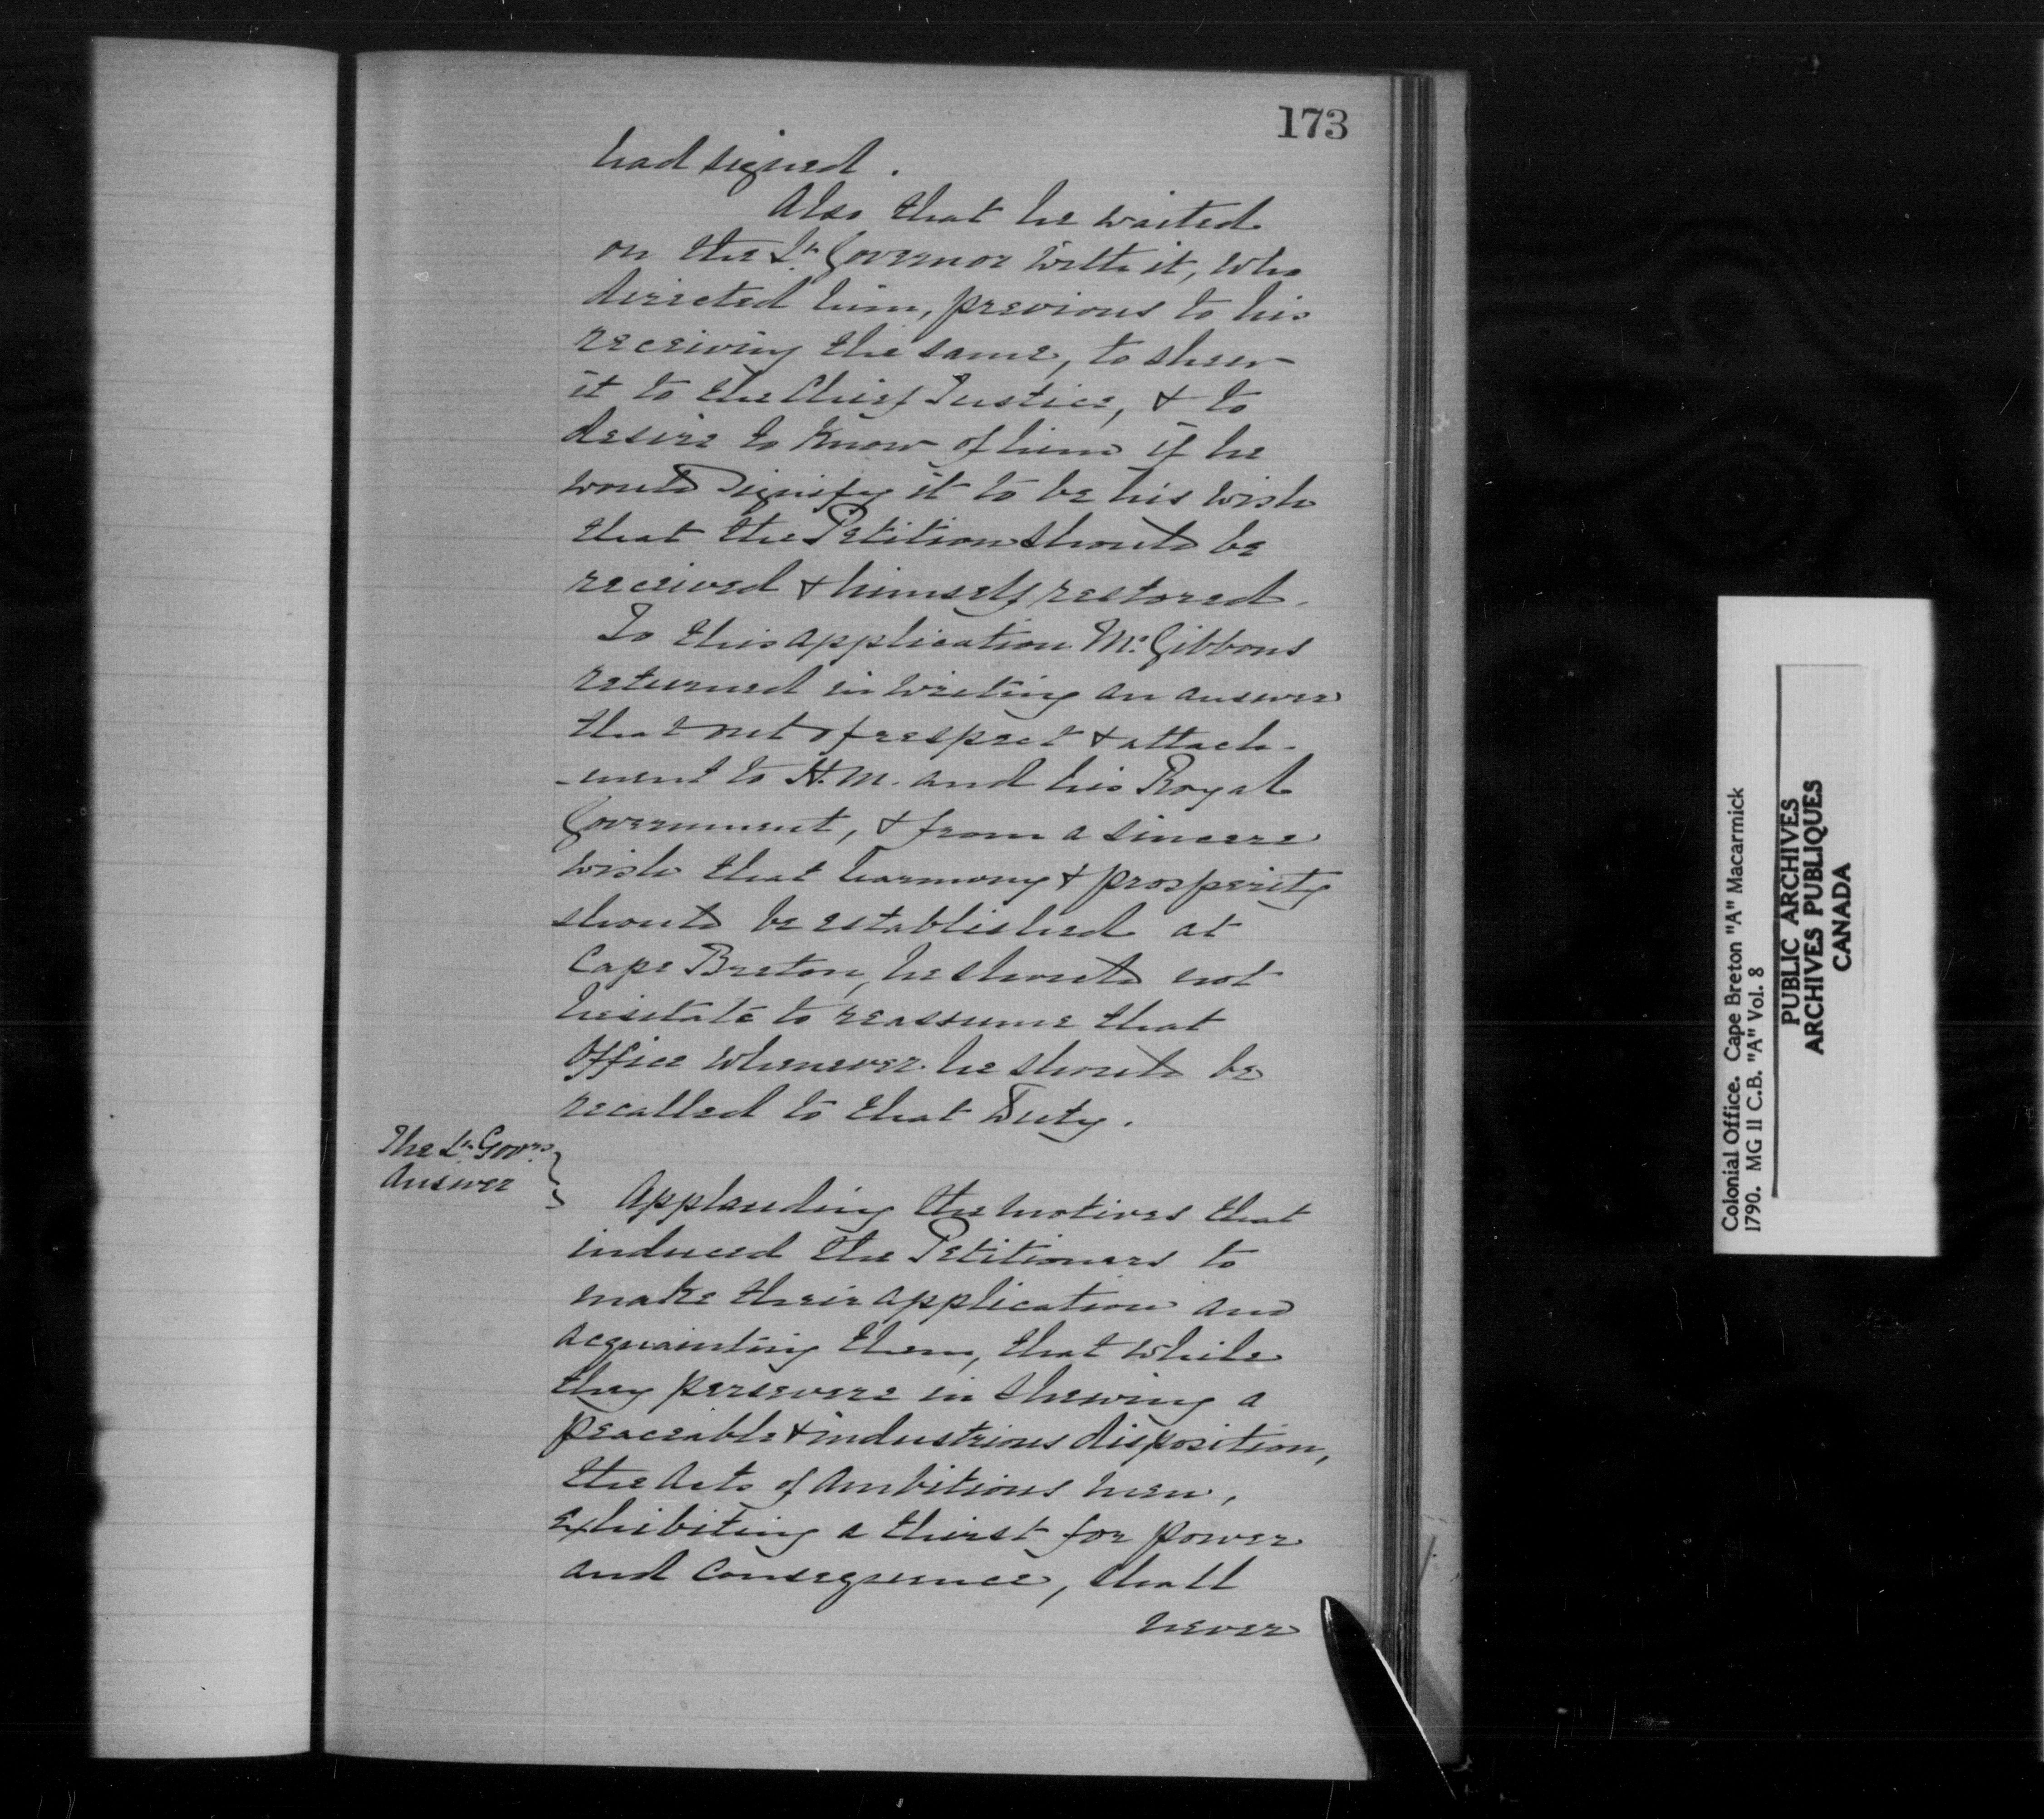 173
had signed.
Also that he waited
on the Lt. Governor with it, who
directed him, previous to his
receiving the same, to shew
it to the Chief Justice, & to
desire to know of him if he
would signify it to be his wish
that the Petition should be
received & himself restored.
To this application Mr. Gibbons
returned in writing an answer
that out of respect & attach-
-ment to H.M. and his Royal
Government, & from a sincere
wish that harmony & prosperity
should be established at
Cape Breton, he should not
hesitate to reassume that
Office whenever he should be
recalled to that Duty.
The Lt. Govrs.
Answer
Applauding the motives that
induced the Petitioners to
make their application and
acquainting them, that while
they persevere in shewing a
peaceable & industrious disposition,
the Acts of ambitious men,
exhibiting a thirst for power
and consequence, shall
never
Colonial Office. Cape Breton "A" Macarmick
1790. MG 11 C.B. "A" Vol. 8
PUBLIC ARCHIVES
ARCHIVES PUBLIQUES
CANADA